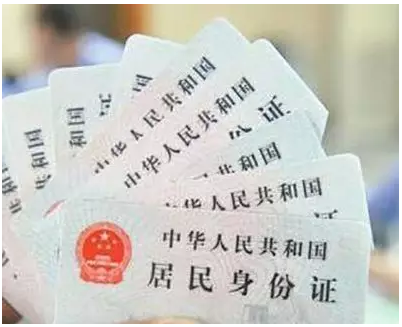 中华人民共和国
中华人民共和国
身份证
中华人民共和国
人民共和国
中华人民共和国
居民身份证